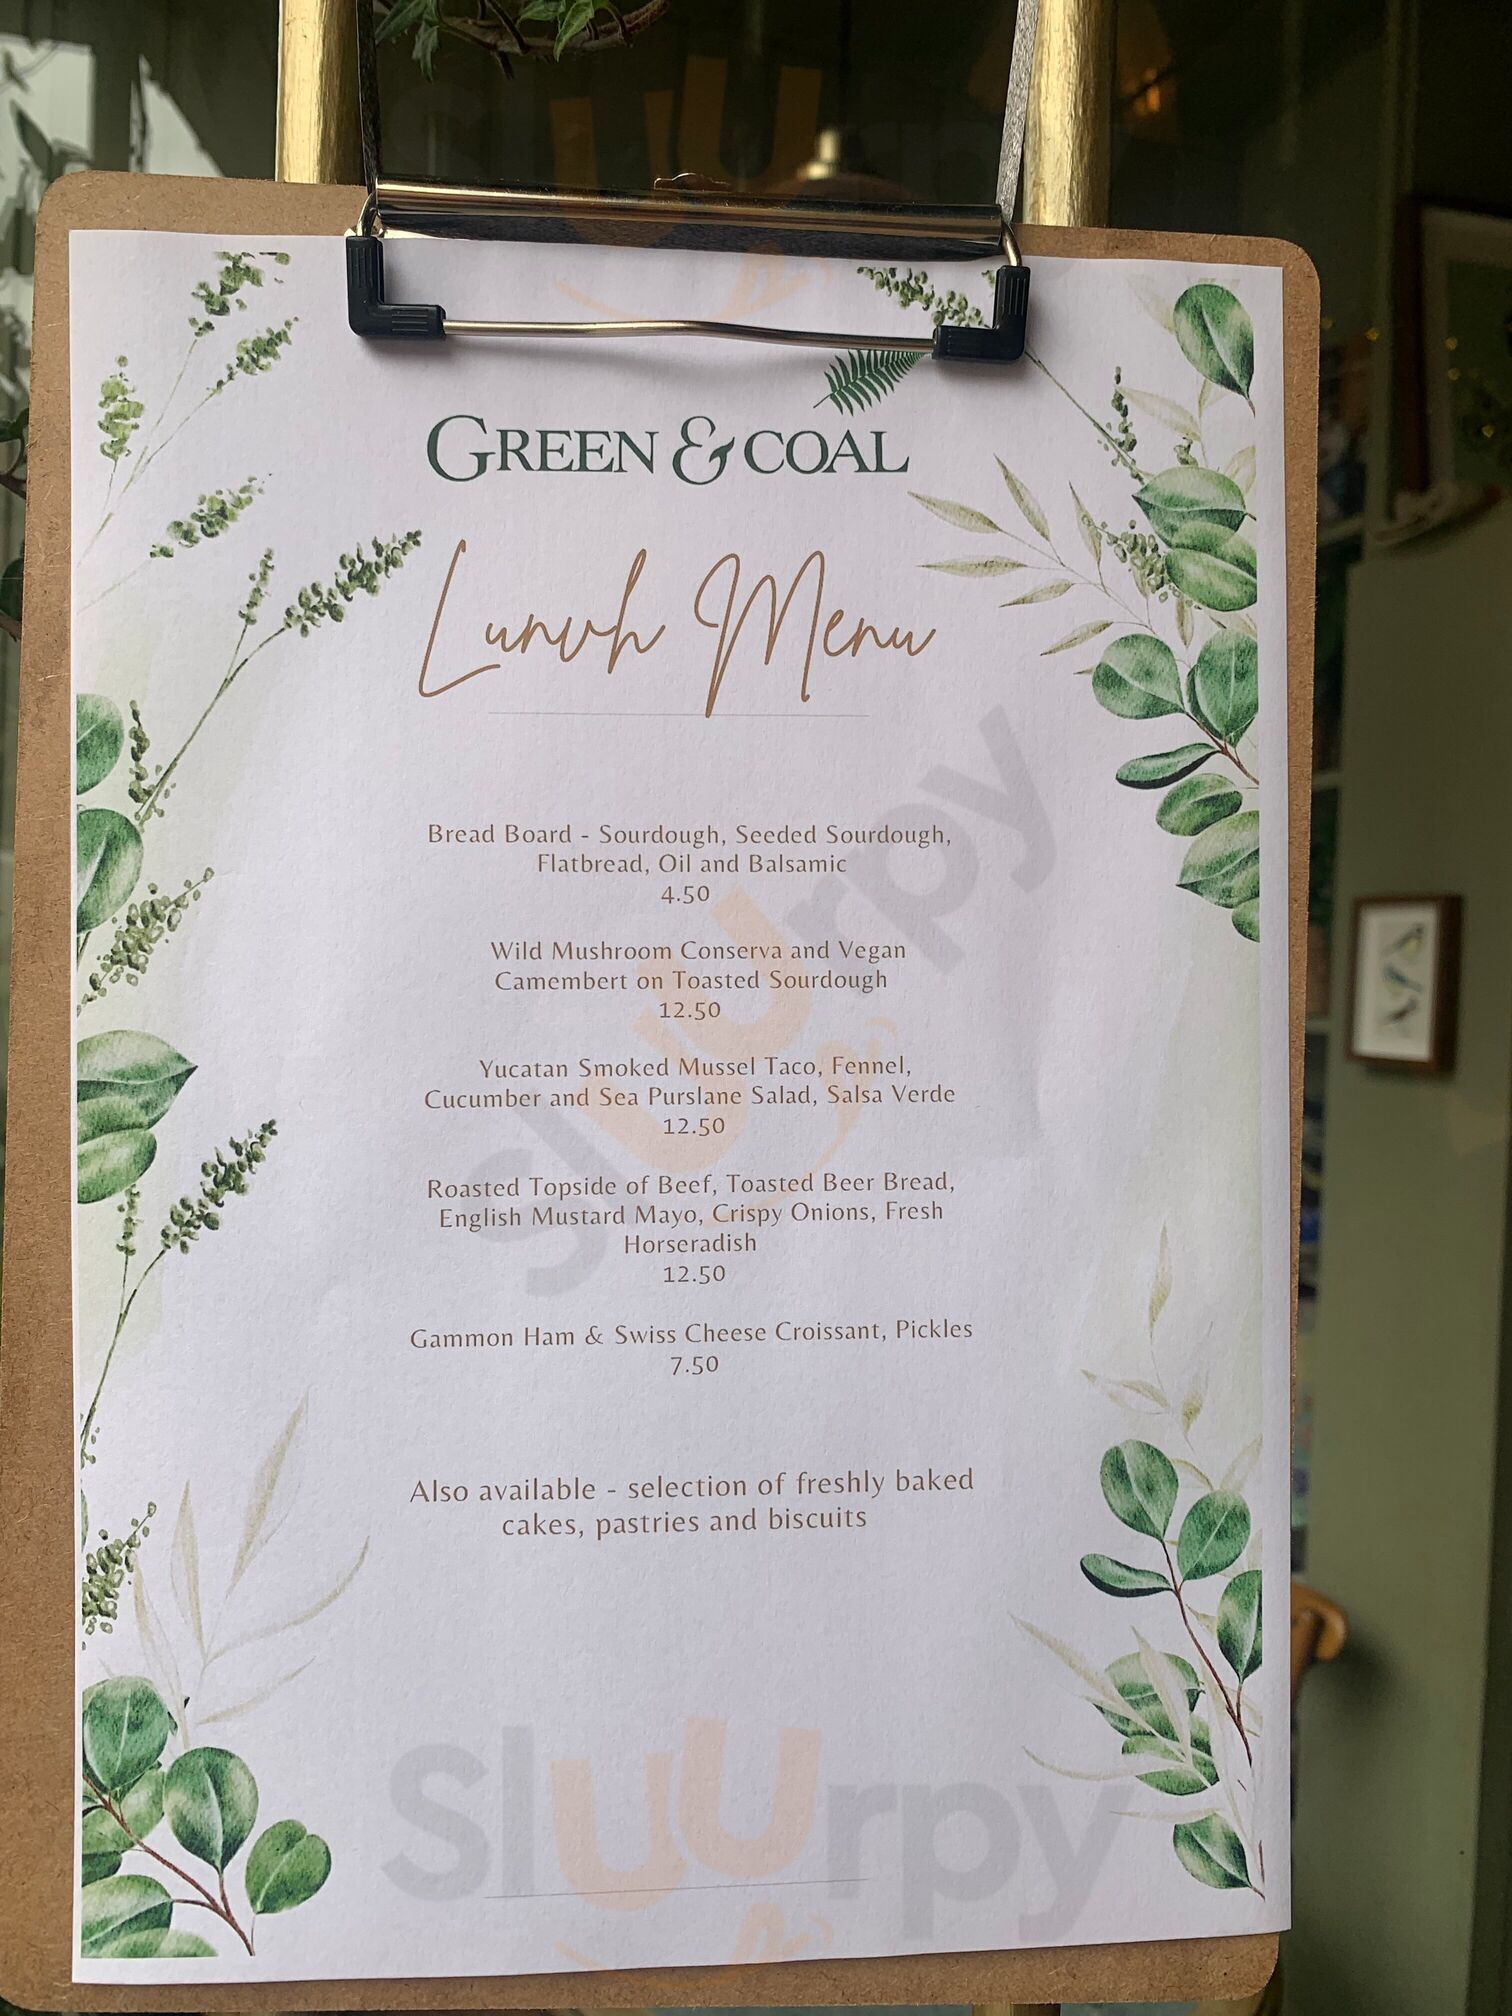 GREEN & COAL
Lunch Menu
Bread Board - Sourdough, Seeded Sourdough,
Flatbread, Oil and Balsamic
4.50
Wild Mushroom Conserva and Vegan
Camembert on Toasted Sourdough
12.50
Yucatan Smoked Mussel Taco, Fennel,
Cucumber and Sea Purslane Salad, Salsa Verde
12.50
Roasted Topside of Beef, Toasted Beer Bread,
English Mustard Mayo, Crispy Onions, Fresh
Horseradish
12.50
Gammon Ham & Swiss Cheese Croissant, Pickles
7.50
Also available - selection of freshly baked
cakes, pastries and biscuits
Sluurpy
Sluurpy
Sluurpy